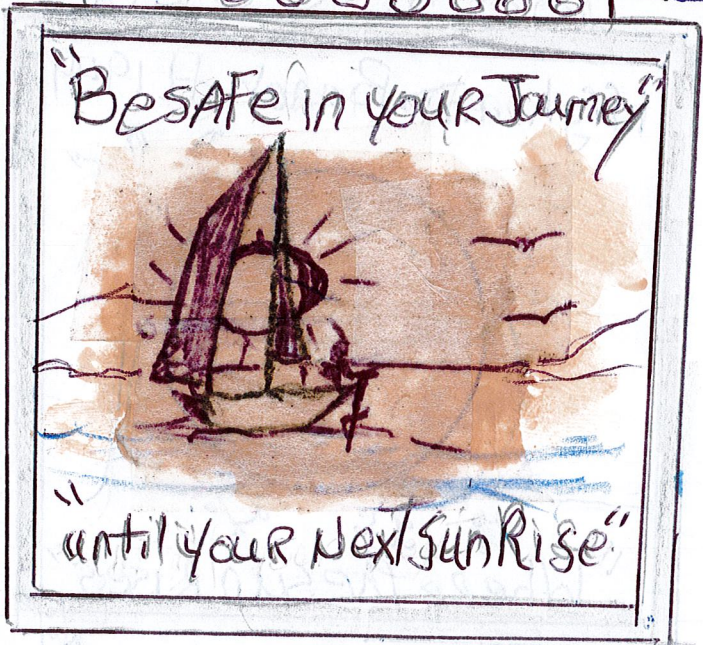 "BesAFe in youR Journey"
"until youR Next SunRise"